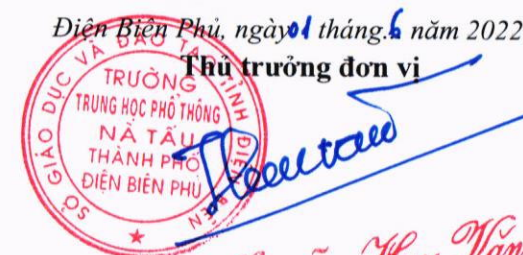 Điện Biên Phủ, ngày 01 tháng.6 năm 2022
Thủ trưởng đơn vị
SỞ GIÁO DỤC VÀ ĐÀO TẠO TỈNH ĐIỆN BIÊN
TRƯỜNG
TRUNG HỌC PHỔ THÔNG
NÀ TẤU
THÀNH PHỐ
ĐIỆN BIÊN PHỦ
Văn